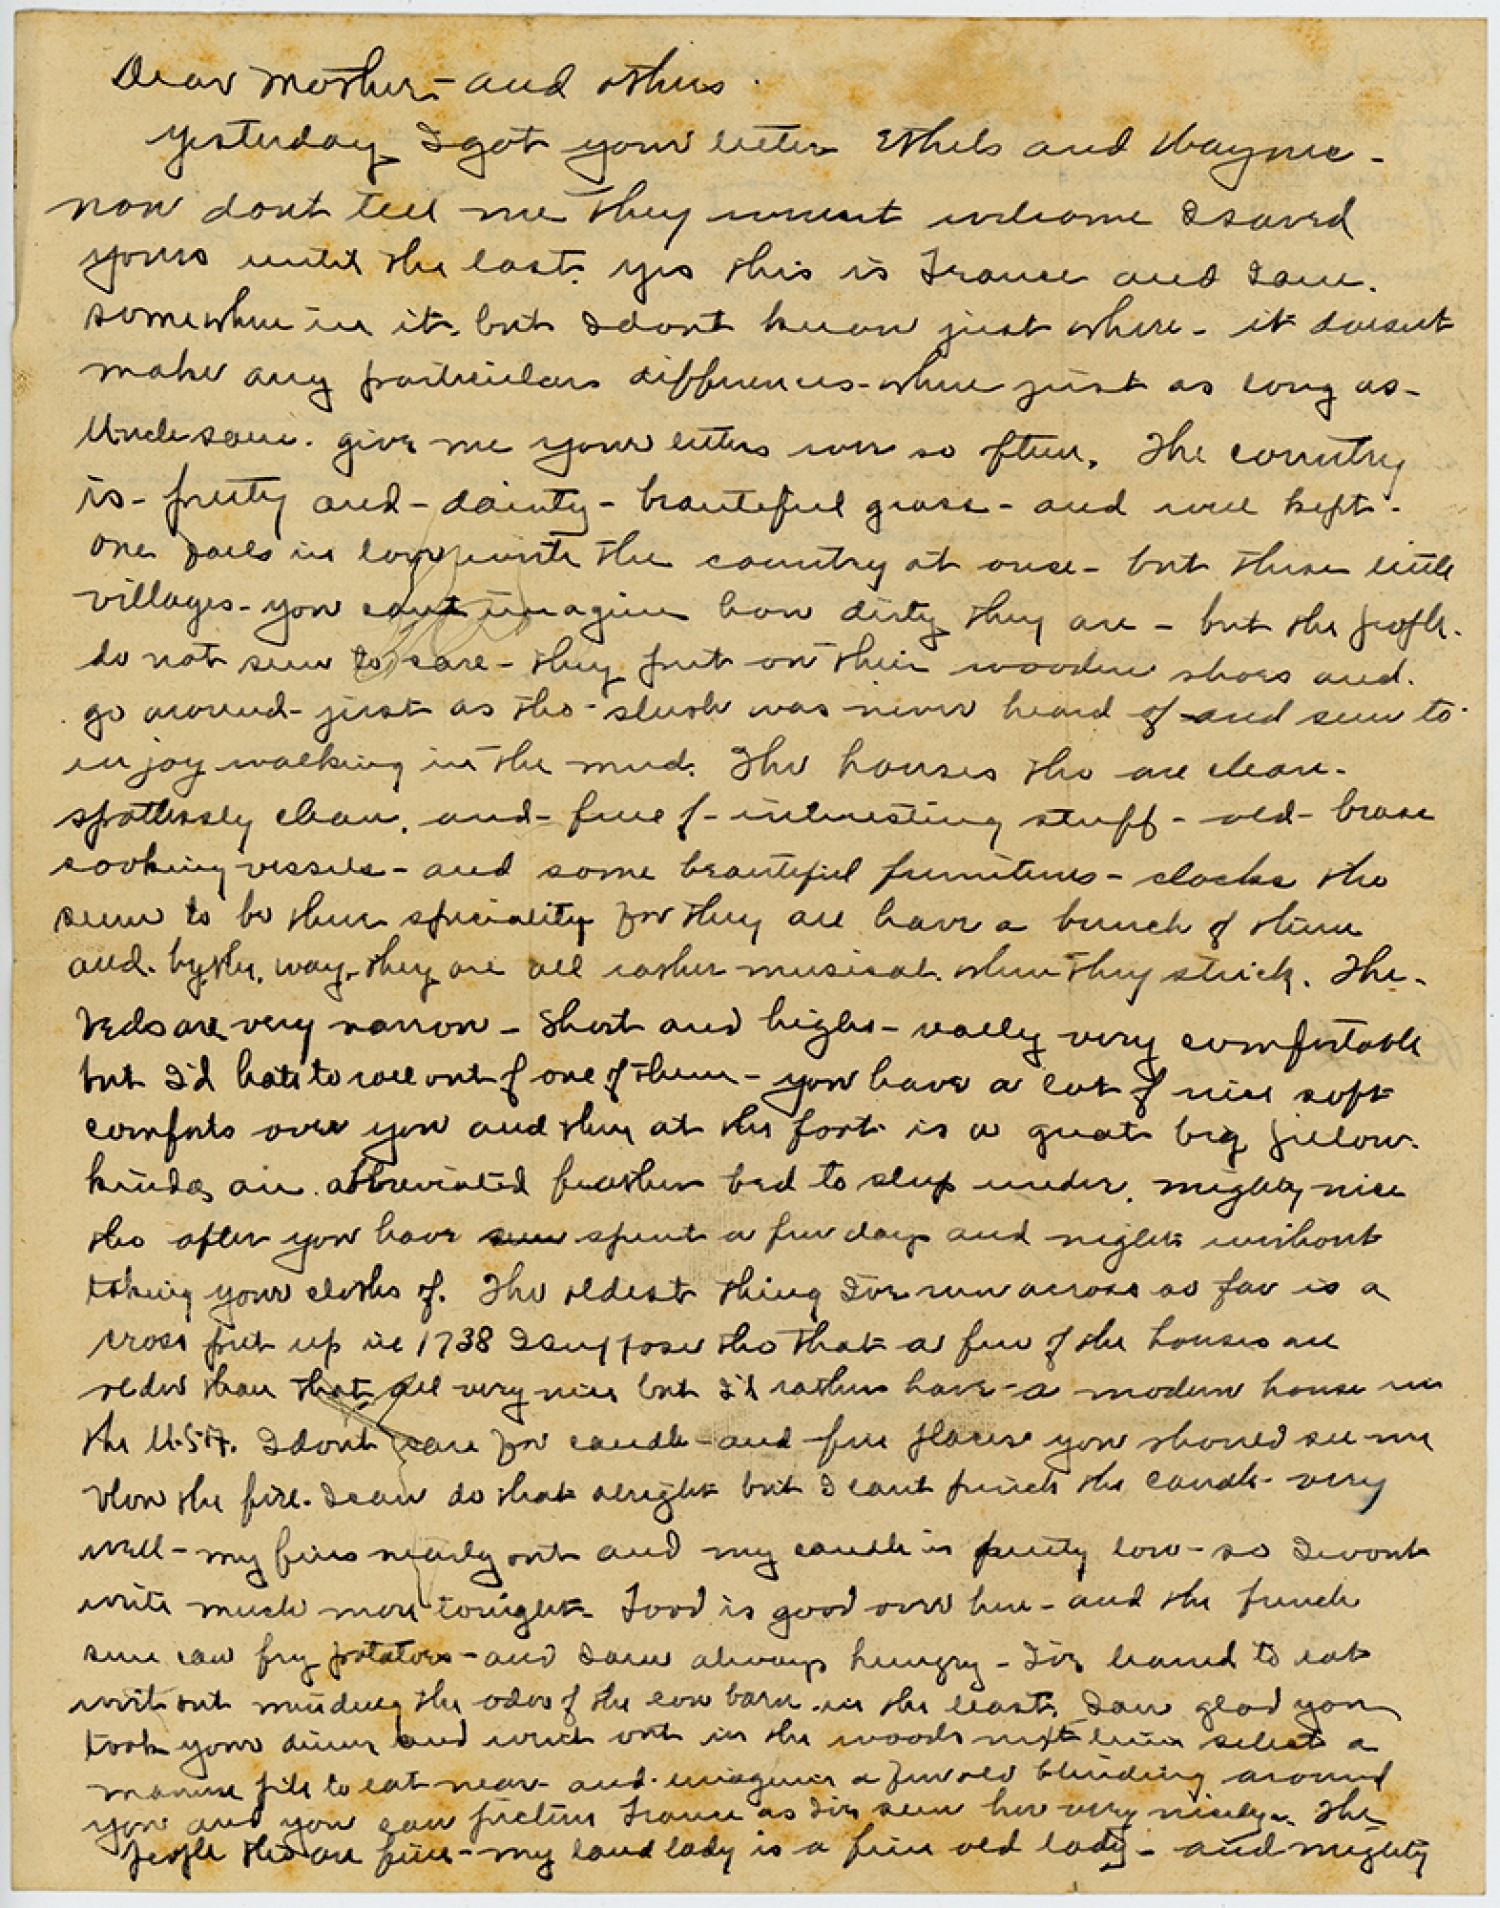 Dear Mother - and others
Yesterday I got your letter Ethels and Waynes -
now dont tell me they wasnt welcome I saved
yours until the last. yes this is France and I am
somewhere in it, but I dont know just where - it doesnt
make any particular differences - where just as long as -
Uncle Sam. give me your letters ever so often. The country
is - pretty and - dainty - beautiful grass - and well kept -
one falls in love with the country at once - but these little
villages - you cant imagine how dirty they are - but the people.
do not seem to care - they put on their wooden shoes and.
go around - just as tho - slush was never heard of - and seem to
injoy walking in the mud. The houses tho are clean -
spotlessly clean, and - full of - interesting stuff - old - brass
cooking vessels - and some beautiful furnitures - clocks tho
seem to be their speciality for they all have a bunch of them
and. by the. way - they are all rather musical. when they strick. The -
beds are very narrow - short and high - really very comfortable
but I'd hate to roll out of one of them - you have a lot of nice soft
comforts over you and then at the foot is a great big pillow.
kinda an abbreviated feather bed to sleep under. mighty nice
tho after you have spent a few days and nights without
taking your clothes of. The oldest thing I've run across so far is a
cross put up in 1738 I suppose tho that a few of the houses are
older than that all very nice but I'd rather have - a modern house in
the U.S.A. I dont care for candle - and fire places you should see me
blow the fire. I can do that alright but I cant pinch the candle - very
well - my fires nearly out and my candle is pretty low - so I wont
write much more tonight - Food is good over here - and the french
sure can fry potatoes - and I am always hungry - I've learned to eat
without minding the odor of the cow barn in the least. I am glad you
took your dinner and went out in the woods next time select a
manure pile to eat near - and imagine a few old around
you and you can picture France as I've seen her very nicely. The
people tho are fine - my land lady is a fine old lady - and mighty